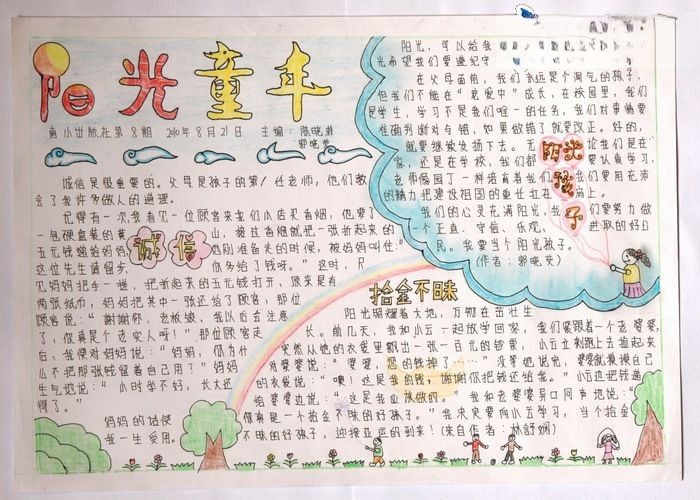 阳光童年
南小出版社第8期 2010年8月21日 主编：陈晓弟
郭晓芡
诚信
诚信是很重要的。父母是孩子的第1任老师，他们教
会了我许多做人的道理。
记得有一次，我看见一位顾客来我们小店买香烟，他要了
一包硬盒装的黄 山，接过香烟就把一张折起来的
五元钱递给妈妈
这位先生请留步， 你多给了钱呀。”这时，只
见妈妈把手一摊，把折起来的五元钱打开，原来是有
两张纸币，妈妈把其中一张还给了顾客，那位
顾客说：“谢谢你，老板娘，我以后会注意
了，你真是个老实人呀！”那位顾客走
后，我便对妈妈说：“妈妈，你为什
么不把那张钱留着自己用？”妈妈
生气地说：“小时学不好，长大还
得了。”
妈妈的话使
我一生受用。
阳光孩子
阳光，可以给我
光希望我们要遵纪守
在父母面前，我们永远是个淘气的孩子，
但我们不能在“宠爱中”成长，在校园里，我们
是学生，学习不是我们唯一的任务，我们对事情要
准确判断对与错，如果做错了就要改正。好的，
就要继续发扬下去。无 论我们是在
家，还是在学校，我们都 要认真学习，
老师像园丁一样培育着我们， 我们要用充沛
的精力把建设祖国的重任扛在 肩上。
我们的心灵充满阳光， 我们要努力做
一个正直、守信、乐观、 进取的好公
民。我要当个阳光孩子。
（作者：郭晓芡）
拾金不昧
阳光照耀着大地，万物在茁壮生
长。前几天，我和小云一起放学回家，我们紧跟着一个老婆婆，
突然从她的衣袋里飘出一张一百元的钞票，小云立刻跑上去捡起来
对婆婆说：“婆婆，您的钱掉了……”没等她说完，婆婆就摸摸自己
的衣袋说：“噢！这是我的钱，谢谢你把钱还给我。”小云边把钱递
给婆婆边说：“这是我应该做的。”我和老婆婆异口同声地说：“
你真是一个拾金不昧的好孩子。”我决定要向小云学习，当个拾金
不昧的好孩子，迎接亚运的到来！（来自作者：林舒娴）